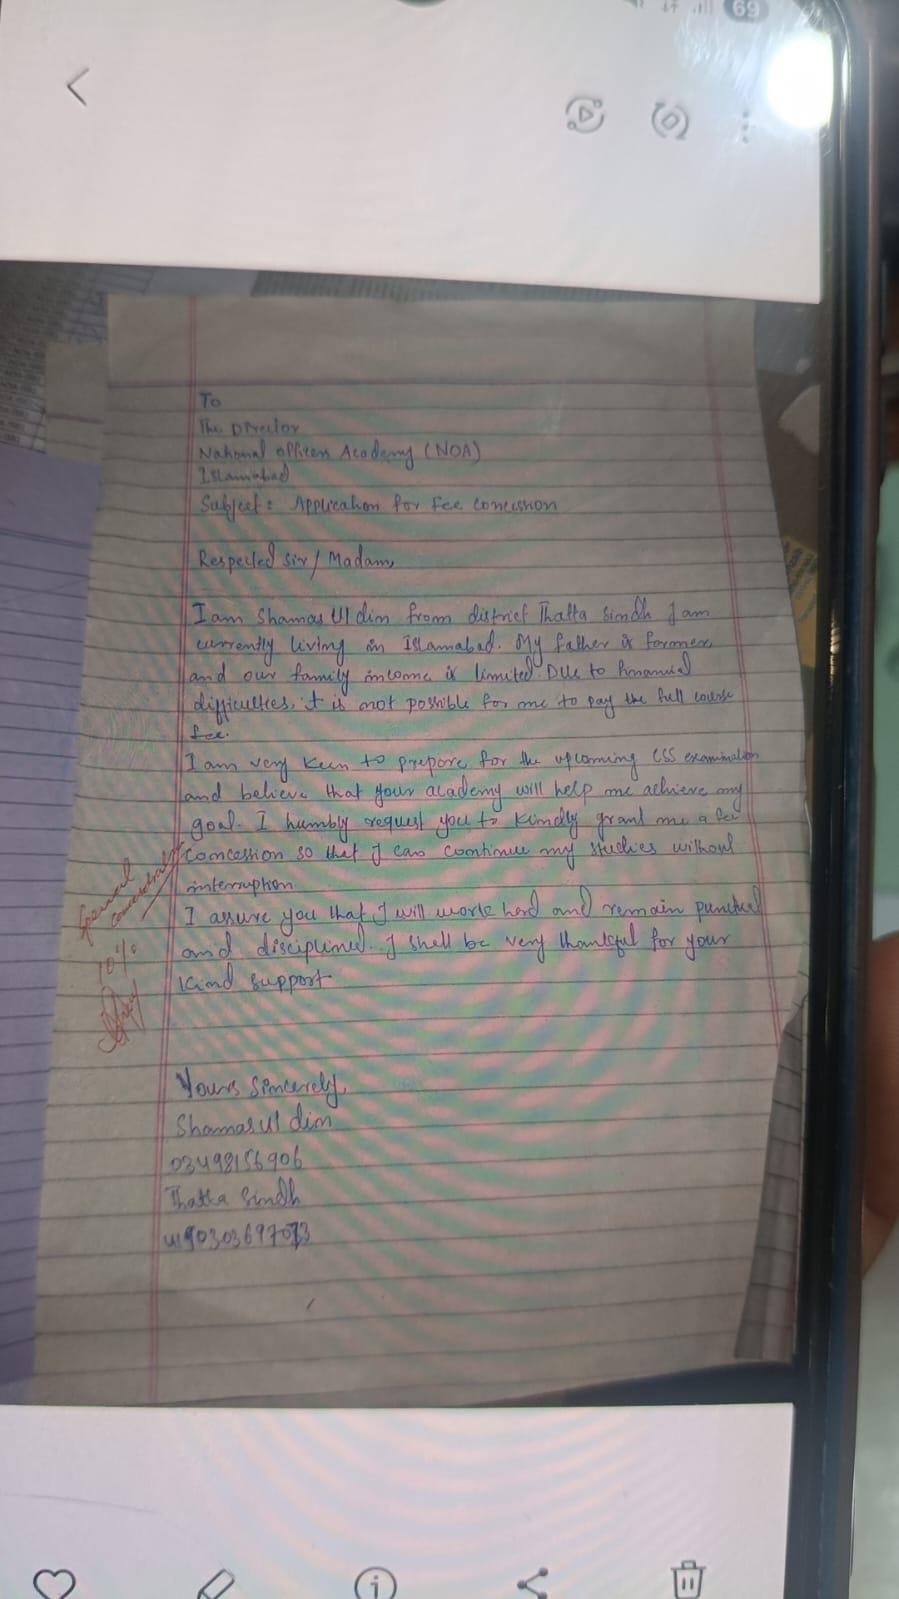 69
To
The Director
National Officers Academy (NOA)
Islamabad
Subject: Application for Fee Concession
Respected Sir/ Madam,
I am Shamas Ul din from district Thatta Sindh I am
currently living in Islamabad. My father is farmer,
and our family income is limited. Due to financial
difficulties, it is not possible for me to pay the full course
fee.
I am very keen to prepare for the upcoming CSS examination
and believe that your academy will help me achieve my
goal. I humbly request you to kindly grant me a fee
concession so that I can continue my studies without
interruption.
I assure you that I will work hard and remain punctual
and disciplined. I shall be very thankful for your
kind support
Special
10%
Yours Sincerely,
Shamas Ul din
03498156906
Thatta Sindh